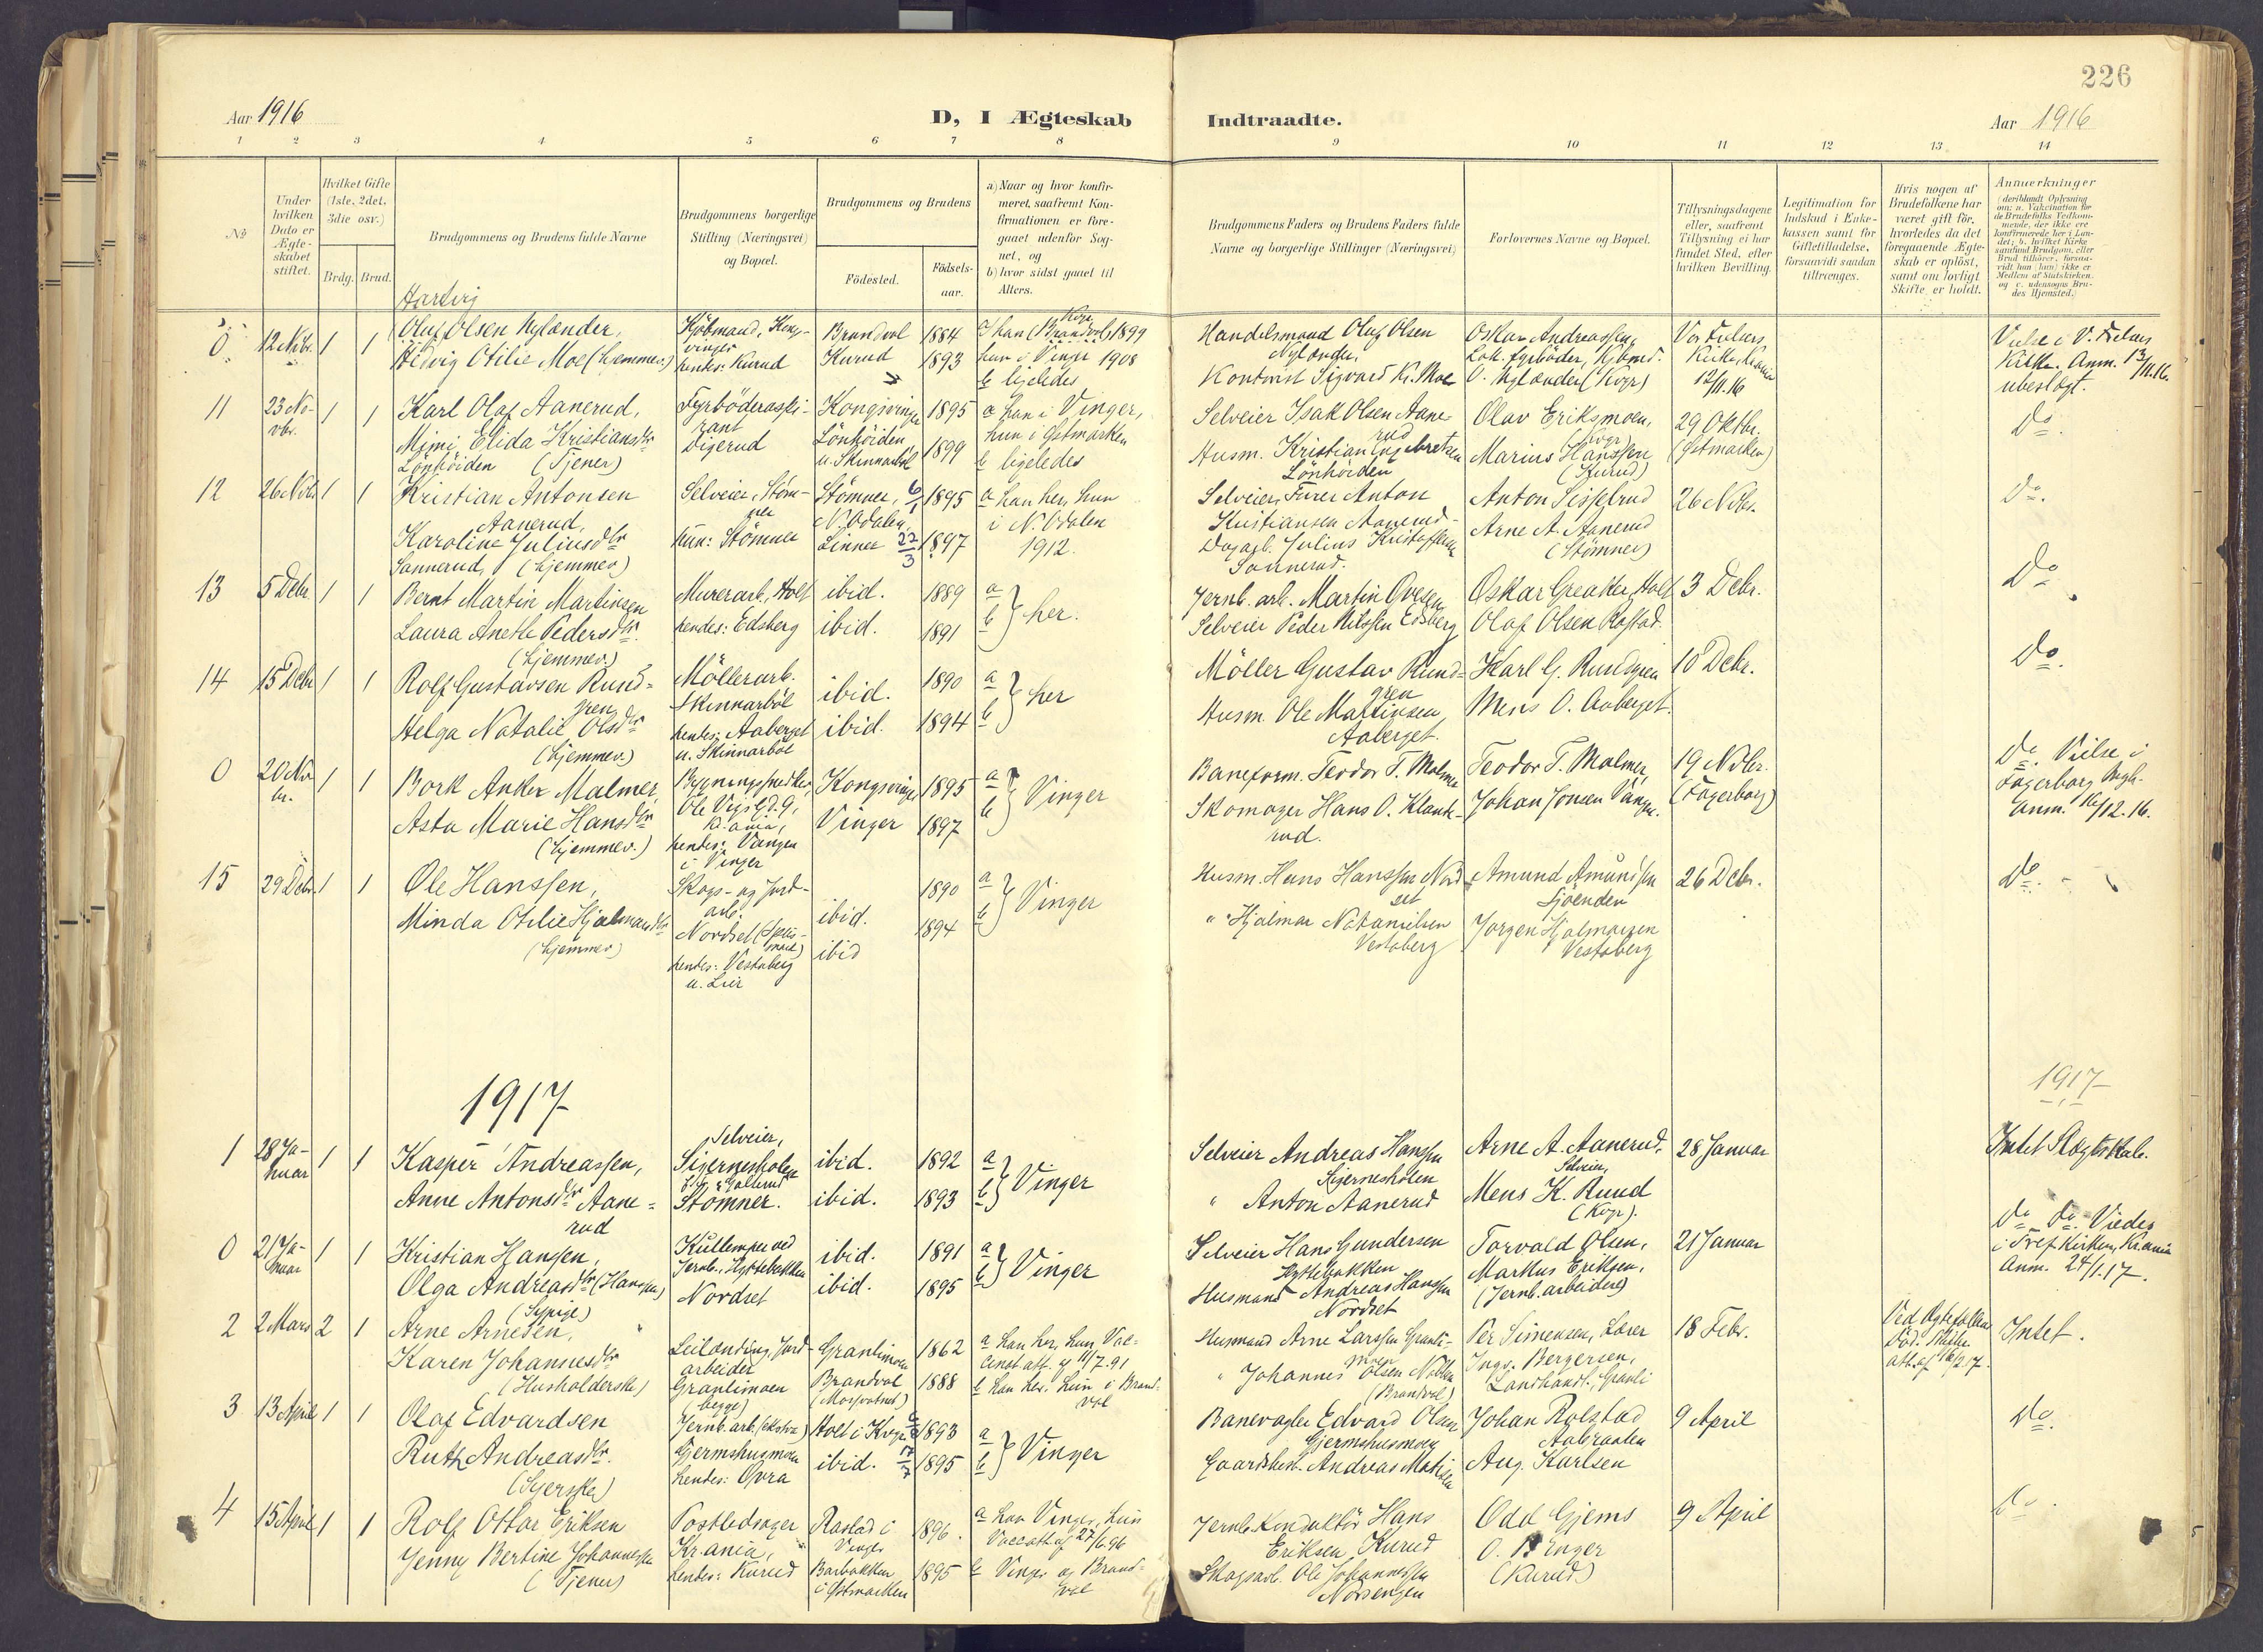 226
Aar 1916
D, I Ægteskab
Indtraadte.
Aar 1916
1 2 3 4 5 6 7 8 9 10 11 12 13 14
No
Under hvilken Dato er Ægteskabet stiftet.
Hvilket Gifte (1ste, 2det, 3die osv.)
Brdg. Brud.
Brudgommens og Brudens fulde Navne
Brudgommens borgerlige Stilling (Næringsvei) og Bopæl.
Brudgommens og Brudens
Födested.
Födsels-aar.
a) Naar og hvor konfirmeret, saafremt Konfirmationen er foregaaet udenfor Sognet, og
b) hvor sidst gaaet til Alters.
Brudgommens Faders og Brudens Faders fulde Navne og borgerlige Stillinger (Næringsvei)
Forlovernes Navne og Bopæl.
Tillysningsdagene eller, saafremt Tillysning ei har fundet Sted, efter hvilken Bevilling.
Legitimation for Indskud i Enkekassen samt for Giftetilladelse, forsaavidt saadan tiltrænges.
Hvis nogen af Brudefolkene har været gift för, hvorledes da det foregaaende Ægteskab er oplöst, samt om lovligt Skifte er holdt.
Anmærkninger (deriblandt Oplysning om: a. Vakcination for de Brudefolks Vedkommende, der ikke ere konfirmerede her i Landet; b. hvilket Kirkesamfund Brudgom, eller Brud tilhörer, forsaavidt han (hun) ikke er Medlem af Statskirken, og c. udensogns Brudes Hjemsted.)
Hartvig
0 12 Nvbr. 1 1 Oluf Olsen Nylænder, Kjöbmand, Kongsvinger Brandval 1884 a han (Brandval) 1899
Hedvig Otilie Moe (hjemmev.) hendes: Kurud Kurud 1893 hun i Vinger 1908
b ligeledes
Handelsmand Oluf Olsen Nylænder, Oskar Andreassen, Vor Frelsers Kirke, Krania 12/11.16
Kontorist Sigvard Kr. Moe O. Nylænder (Kvgr)
Vielse i V. Frelsers Kirke. Anm. 13/11.16. ubeslegt.
11 23 Novbr. 1 1 Karl Olaf Aanerud, Fyrböderaspirant Kongsvinger 1895 a han i Vinger,
Mimi Elida Kristiansdtr Lönhöiden (Tjener) Digerud Lönhöiden u. Skinnarböl 1899 hun i Østmarken
b ligeledes
Selveier Isak Olsen Aanerud Olav Eriksmoen, (Kvgr) 29 Oktbr. (Østmarken) Do.
Husm. Kristian Engebretsen Lönhöiden Marius Hanssen (Kurud)
12 26 Nvbr. 1 1 Kristian Antonsen Aanerud, Selveier, Stömner Stömner, 6/1 1895 a han her, hun
Karoline Juliusdtr Sannerud, (hjemmev) hun: Stömner N. Odalen, Linner 22/3 1897 i N. Odalen 1912.
Selveier, Furer Anton Kristiansen Aanerud Anton Sisselrud 26 Nvbr. Do.
Dagarb. Julius Kristoffersen Sannerud. Arne A. Aanerud (Stömner)
13 5 Debr 1 1 Bernt Martin Martinsen Murerarb., Holt ibid. 1889 a
Laura Anethe Pedersdtr. (hjemmev.) hendes: Edsberg ibid. 1891 b } her.
Jernb. arb. Martin Ovesen Oskar Greaker, Holt 3 Debr. Do
Selveier Peder Nilssen Edsberg Olaf Olsen Rastad
14 15 Debr 1 1 Rolf Gustavsen Rundgren Möllerarb. Skinnarböl ibid. 1890 a
Helga Natalie Olsdtr (hjemmev.) hendes: Aaberget u. Skinnarböl ibid. 1894 b } her
Möller Gustav Rundgren Karl G. Rundgren 10 Debr. Do.
Husm. Ole Martinsen, Aaberget. Mens O. Aaberget.
0 20 Nvbr. 1 1 Bork Anker Malmer, Kongsvinger 1895 a
Asta Marie Hansdtr (hjemmev.) hendes: Vangen i Vinger Vinger 1897 b } Vinger
Baneform. Teodor T. Malmer Teodor T. Malmer, 19 Nvbr. (Fagerborg)
Skomager Hans O. Klankrud. Johan Jonsen Vangen.
Do. Vielse i Fagerborg Anm. 16/12.16.
15 29 Debr. 1 1 Ole Hanssen, Skogs- og Jordarb. Nordset ibid. 1890 a
Minda Otilie Hjalmarsdtr (hjemmev) hendes: Vestaberg u. Lier ibid 1894 b } Vinger
Husm. Hans Hanssen Nordset Amund Amundsen Sjöenden 26 Debr. Do.
" Hjalmar Natanielsen Vestaberg Jörgen Hjalmarsen Vestaberg
1917
1917
1 28 Januar 1 1 Kasper Andreassen, Selveier, Sigernesholen ibid. 1892 a
Anne Antonsdtr Aanerud Stömner. ibid. 1893 b } Vinger
Selveier Andreas Hansen Sigernesholen Arne A. Aanerud. Selveier, 28 Januar Intet Slægtskab.
" Anton Aanerud Mens K. Ruud (Kvgr).
0 21 Januar 1 1 Kristian Hansen, Kullemper ved Jernb., Hyttebakken ibid. 1891 a
Olga Andreasdtr (Hanssen) (Sypige) Nordset ibid. 1895 b } Vinger
Selveier Hans Gundersen Hyttebakken Torvald Olsen, 21 Januar
Husmand Andreas Hanssen Nordset Markus Eriksen, (Jernb. arbeidere)
Do Do. Viedes i Trefkirken, Krania Anm. 27/1.17.
2 2 Mars 2 1 Arne Arnesen, Leilænding, Jordarbeider Granlimoen 1862 a han her, hun Vaccinat. att. af 11/7.91
Karen Johannesdtr (Husholderske) Granlimoen (begge) Brandval 1888 b han her. hun i Brandval
Husmand Arne Larssen Granlimoen Per Simensen, Lærer 18 Febr.
" Johannes Olsen (Brandval) Ingv. Bergersen, Landhandl., Granli
Ved Ægtefællens Död. Skifteatt. af 16/2 17. Intet.
3 13 April 1 1 Olaf Edvardsen Jernb. arb. (ekstra) Gjermshusmoen Holt i Kvgr. 1893 a
Ruth Andreasdtr. (Syerske) hendes: Övra ibid. 1895 b } Vinger
Banevogter Edvard Olsen Gjermshusmoen Johan Rolstad Aabraaten 9 April Do.
Gaardbest. Andreas Matisen Aug. Karlsen
4 15 April 1 1 Rolf Ottar Eriksen Postledsager Kr.ania, Rastad i Vinger 1896. a han Vinger, hun Vaccatt. af 27/6.96
Jenny Bertine Johannessen (Tjener) hendes: Kurud Barbakken i Østmarken 1895 b Vinger og Brandval
Jernb. Konduktör Hans Eriksen, Kurud Odd Gjems 9 April Do.
Skogsarb. Ole Johannessen Norsengen O. Enger (Kurud)